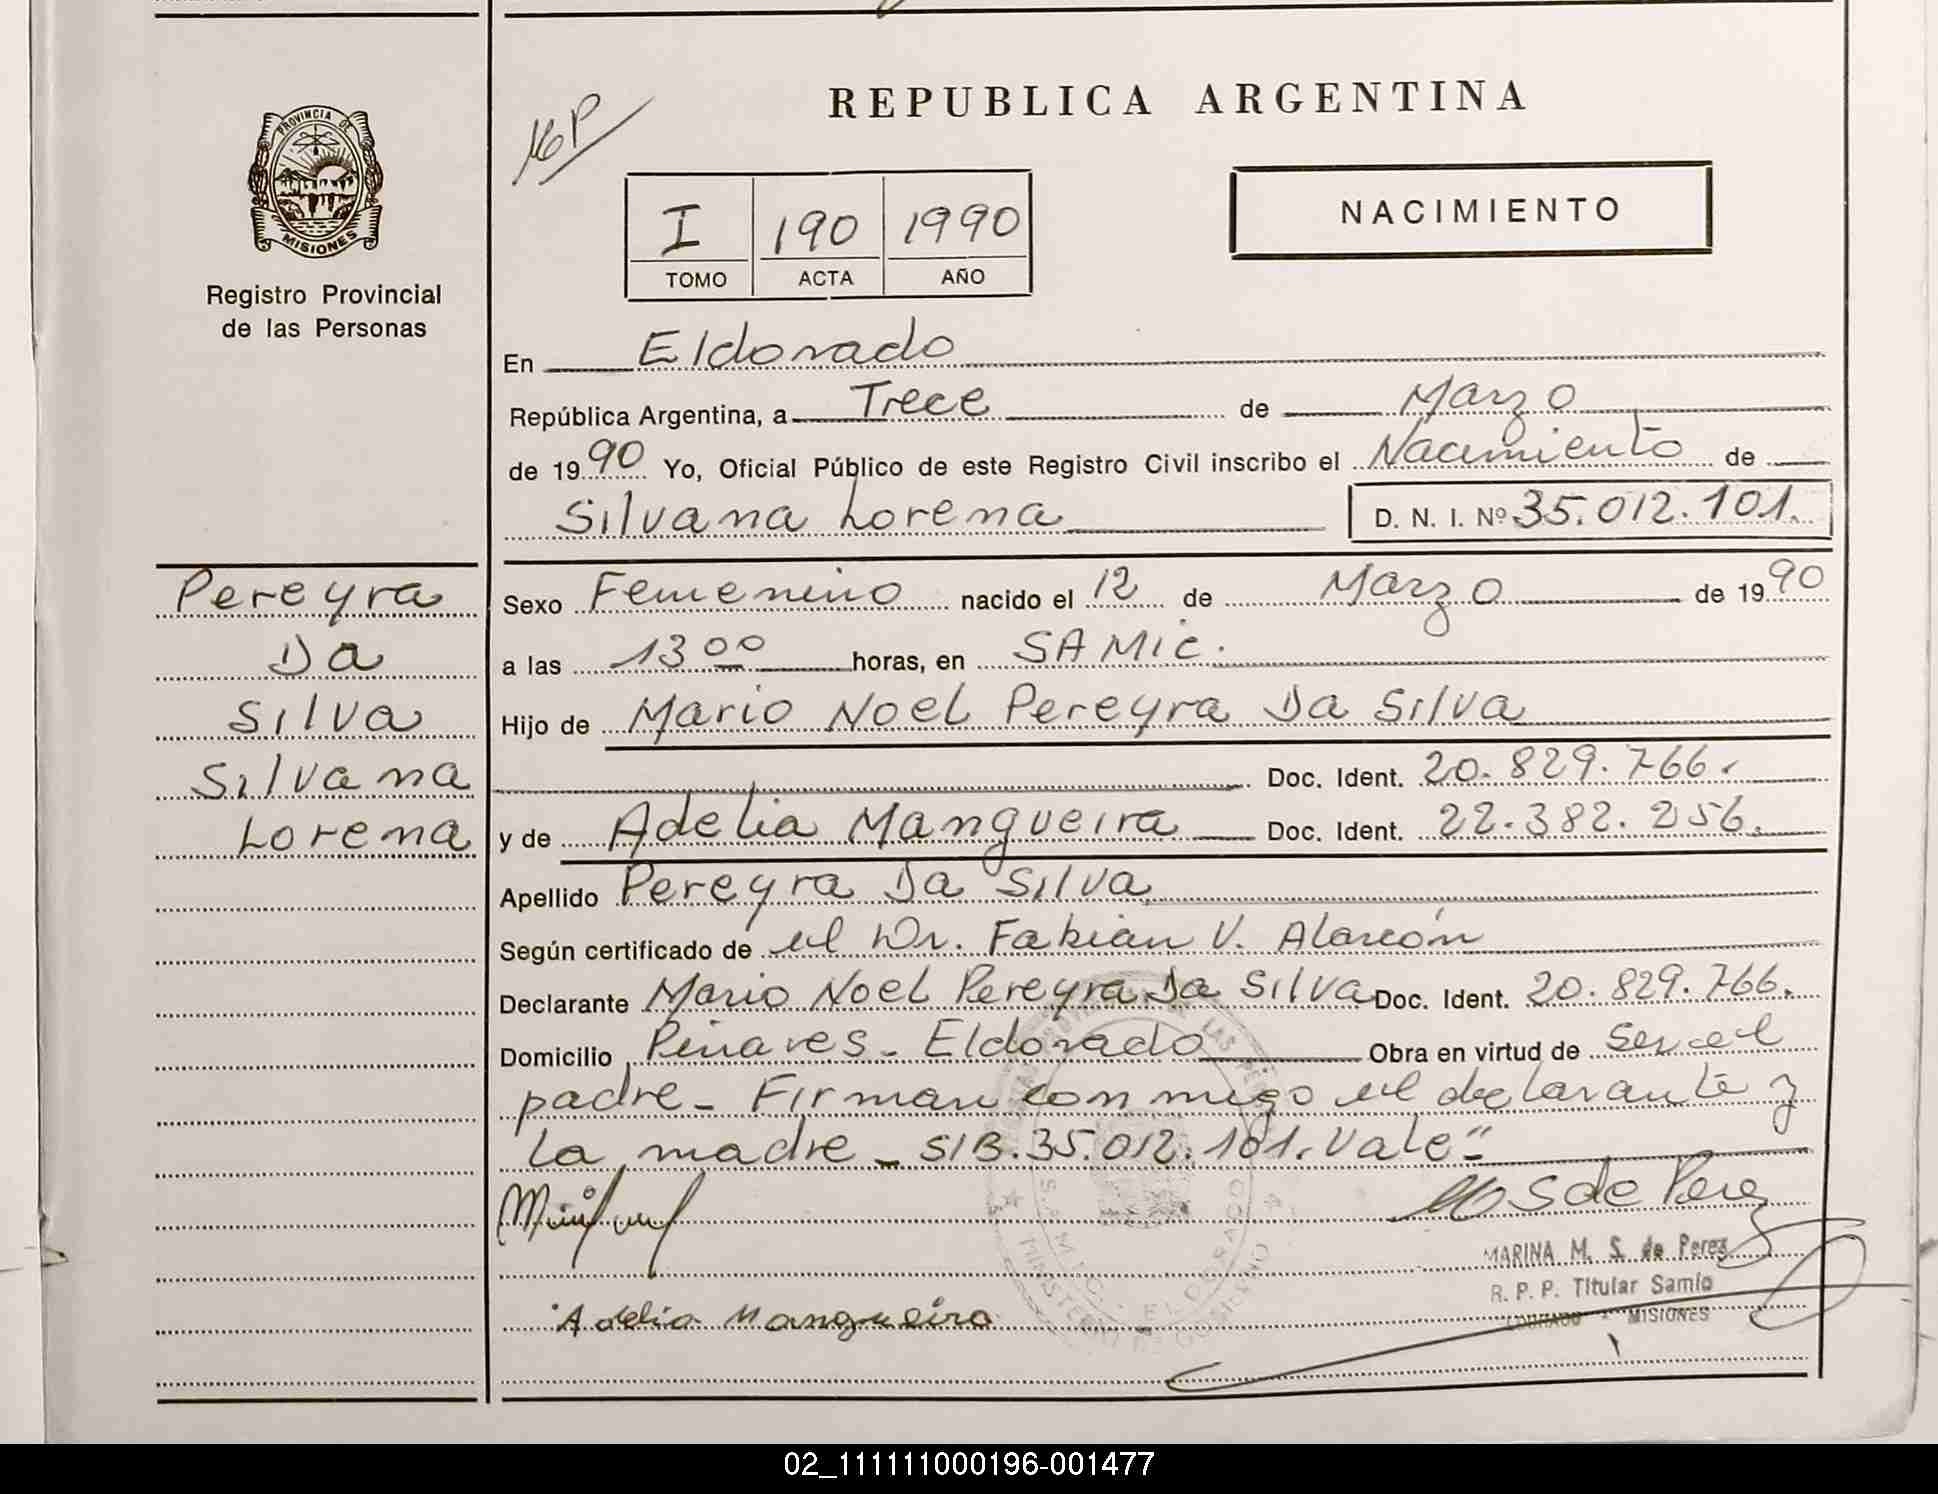 REPUBLICA ARGENTINA
PROVINCIA DE
MISIONES
Registro Provincial
de las Personas
I 190 1990
TOMO ACTA AÑO
NACIMIENTO
En Eldorado
República Argentina, a Trece de Marzo
de 1990 Yo, Oficial Público de este Registro Civil inscribo el Nacimiento de
Silvana Lorena D. N. I. Nº 35.012.101.
Pereyra
Da
Silva
Silvana
Lorena
Sexo Femenino nacido el 12 de Marzo de 1990
a las 13 00 horas, en SAMIC.
Hijo de Mario Noel Pereyra Da Silva
Doc. Ident. 20.829.766.
y de Adelia Mangueira Doc. Ident. 22.382.256.
Apellido Pereyra Da Silva
Según certificado de el Dr. Fabian V. Alarcón
Declarante Mario Noel Pereyra Da Silva Doc. Ident. 20.829.766.
Domicilio Pinares - Eldorado Obra en virtud de ser el
padre - Firman conmigo el declarante y
la madre - S/B. 35.012.101. Vale"-
MARINA M. S. de Perez
R. P. P. Titular Samic
MISIONES
Adelia Mangueira
02_111111000196-001477